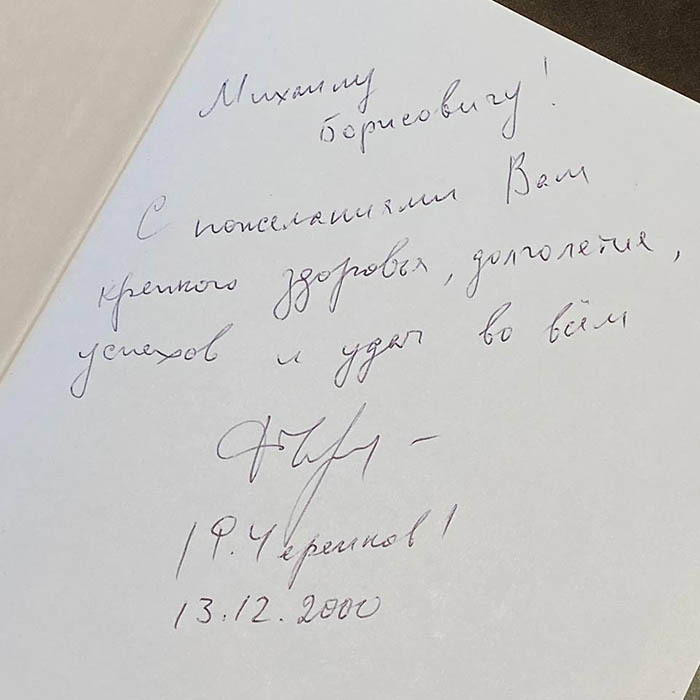 Михаилу
Борисовичу!
С пожеланиями Вам
крепкого здоровья, долголетия,
успехов и удач во всём
/Ф. Черепков/
13.12.2000